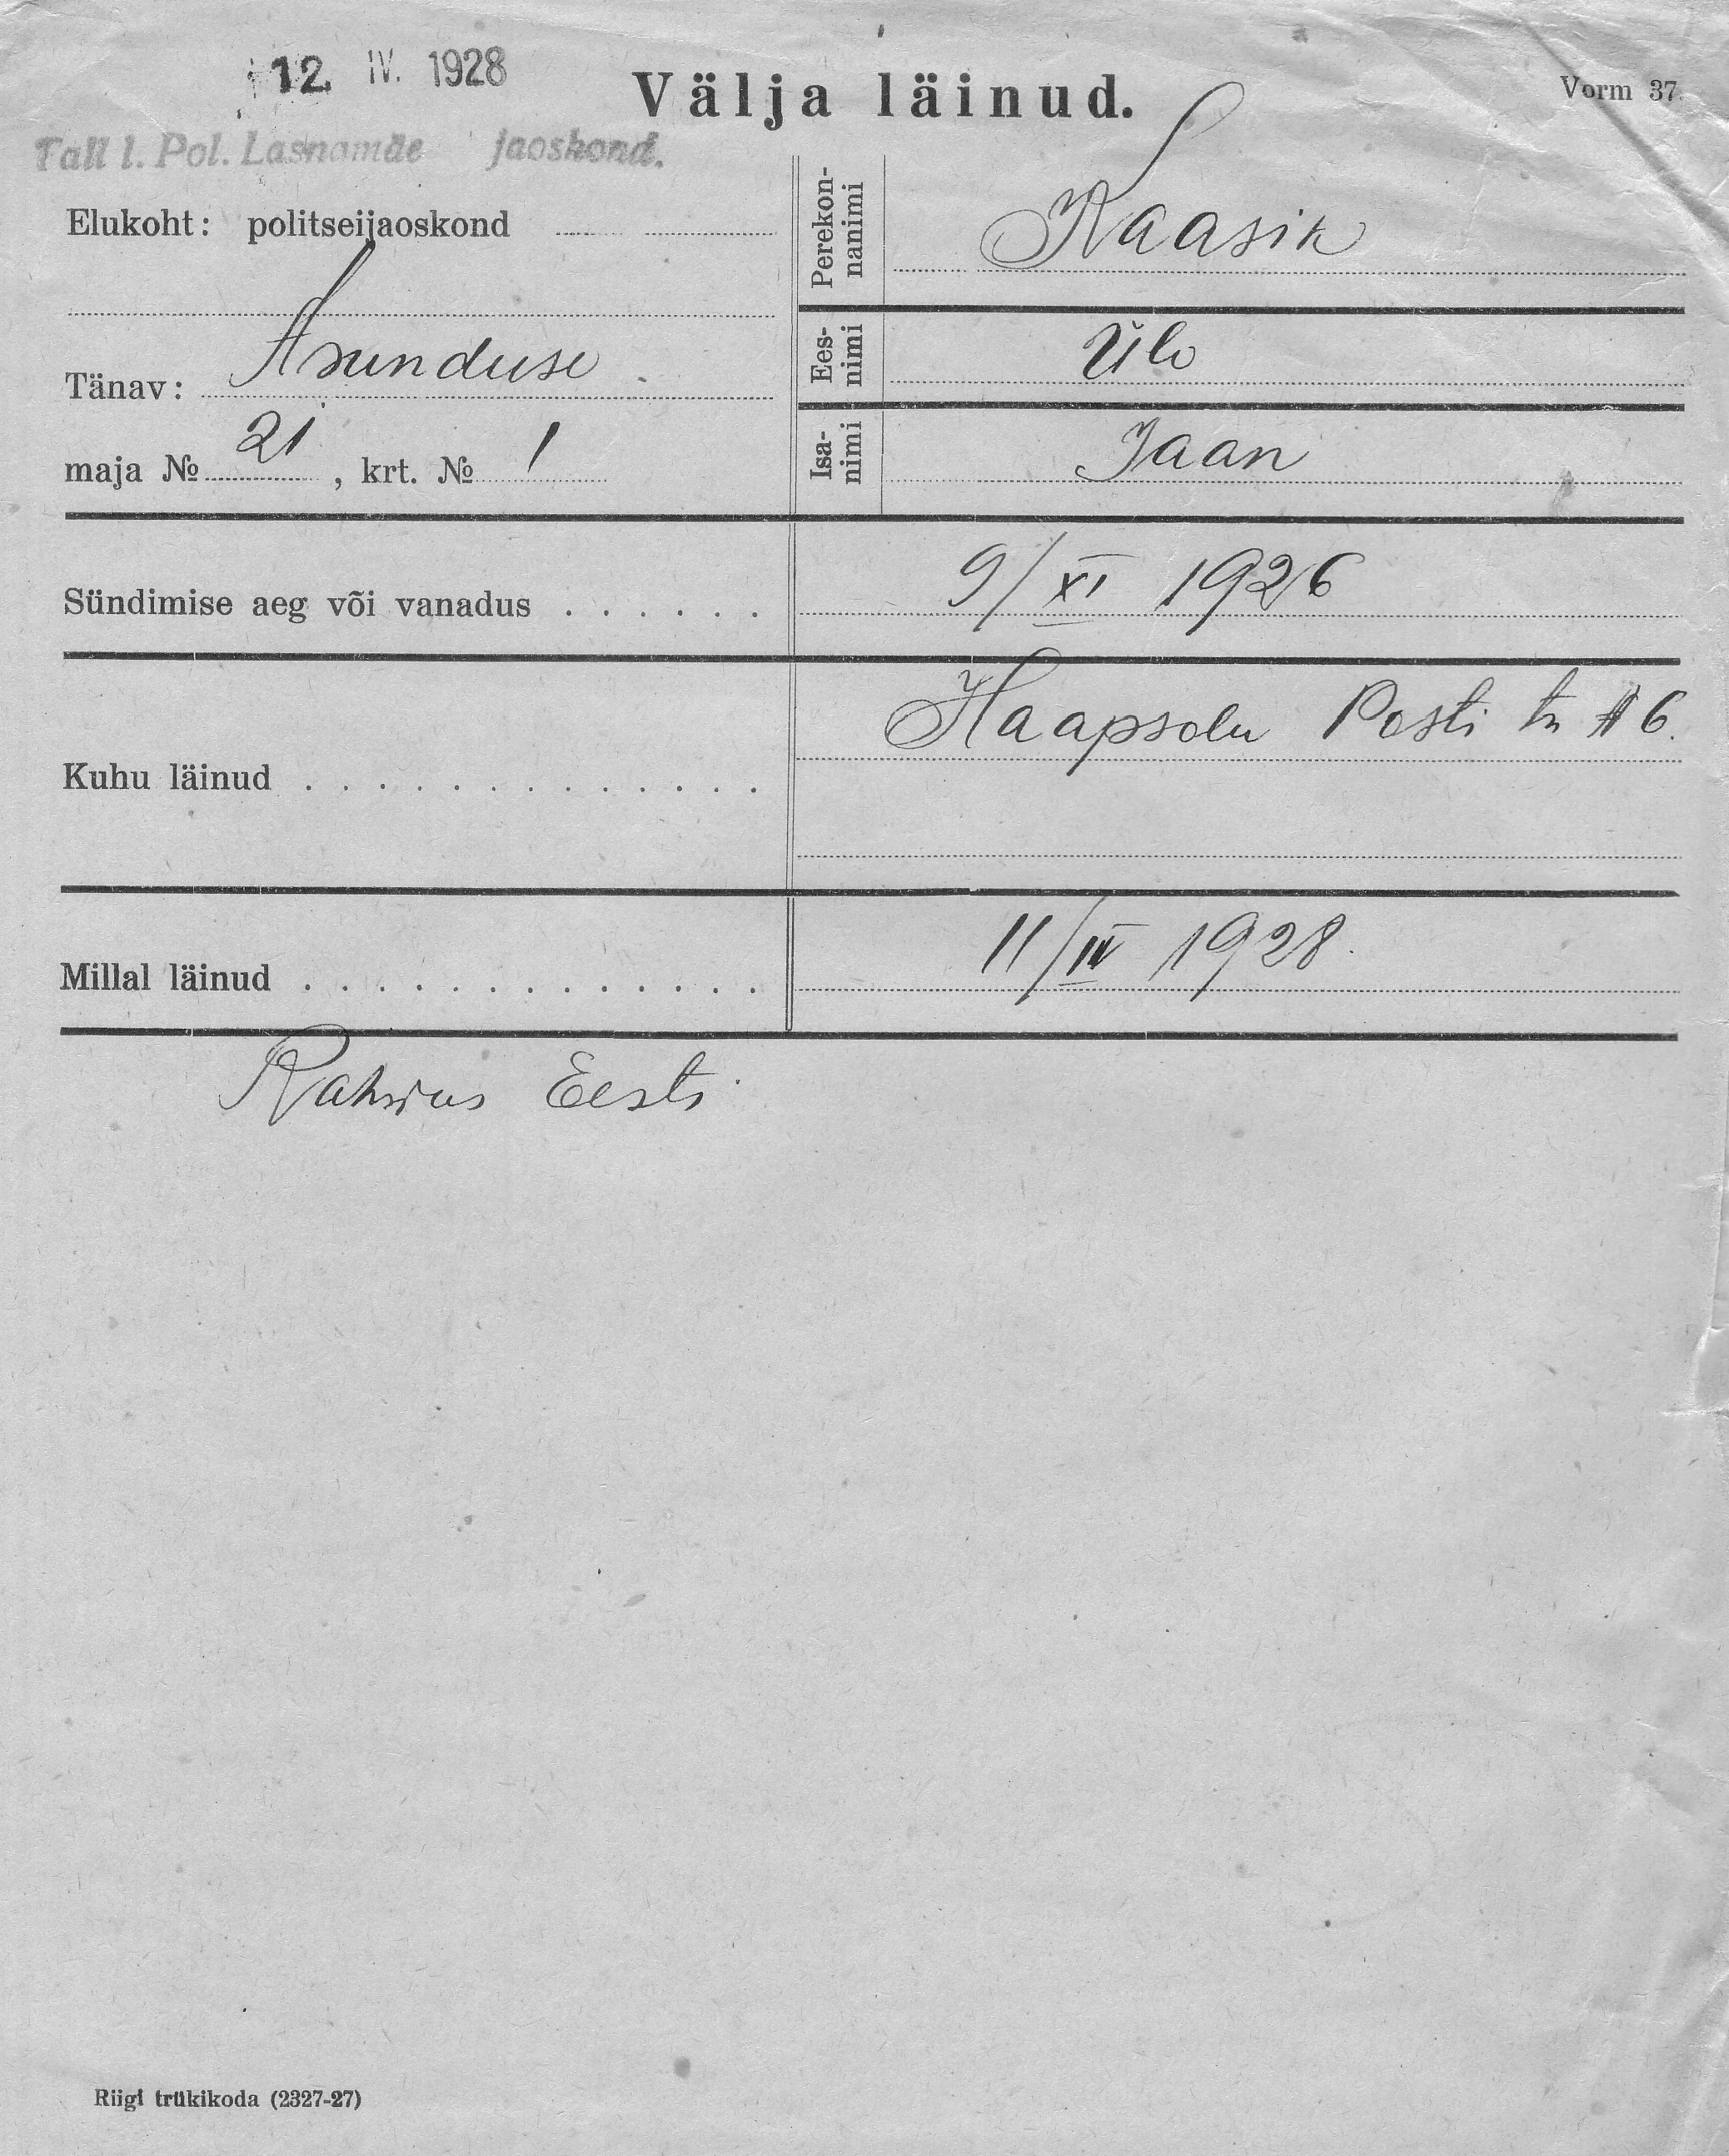 12. IV. 1928
Välja läinud.
Vorm 37.
Tall l. Pol. Lasnamäe jaoskond.
Elukoht: politseijaoskond
Perekon-
nanimi
Kaasik
Tänav: Asunduse
Ees-
nimi
Ülo
maja № 21, krt. № 1
Isa-
nimi
Jaan
Sündimise aeg või vanadus . . . . . . 9/XI 1926
Kuhu läinud . . . . . . . . . . . . . Haapsalu Posti tn № 6.
Millal läinud . . . . . . . . . . . . . 11/IV 1928.
Rahvus Eesti
Riigi trükikoda (2327-27)